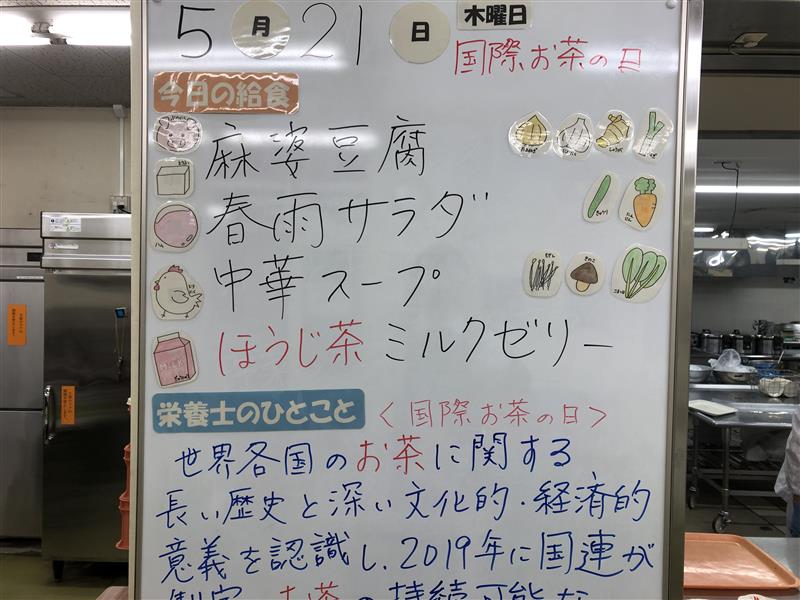 5月21日 木曜日
国際お茶の日
今日の給食
麻婆豆腐
春雨サラダ
中華スープ
ほうじ茶ミルクゼリー
MILK
栄養士のひとこと 〈国際お茶の日〉
世界各国のお茶に関する
長い歴史と深い文化的・経済的
意義を認識し、2019年に国連が
制定 お茶の持続可能な